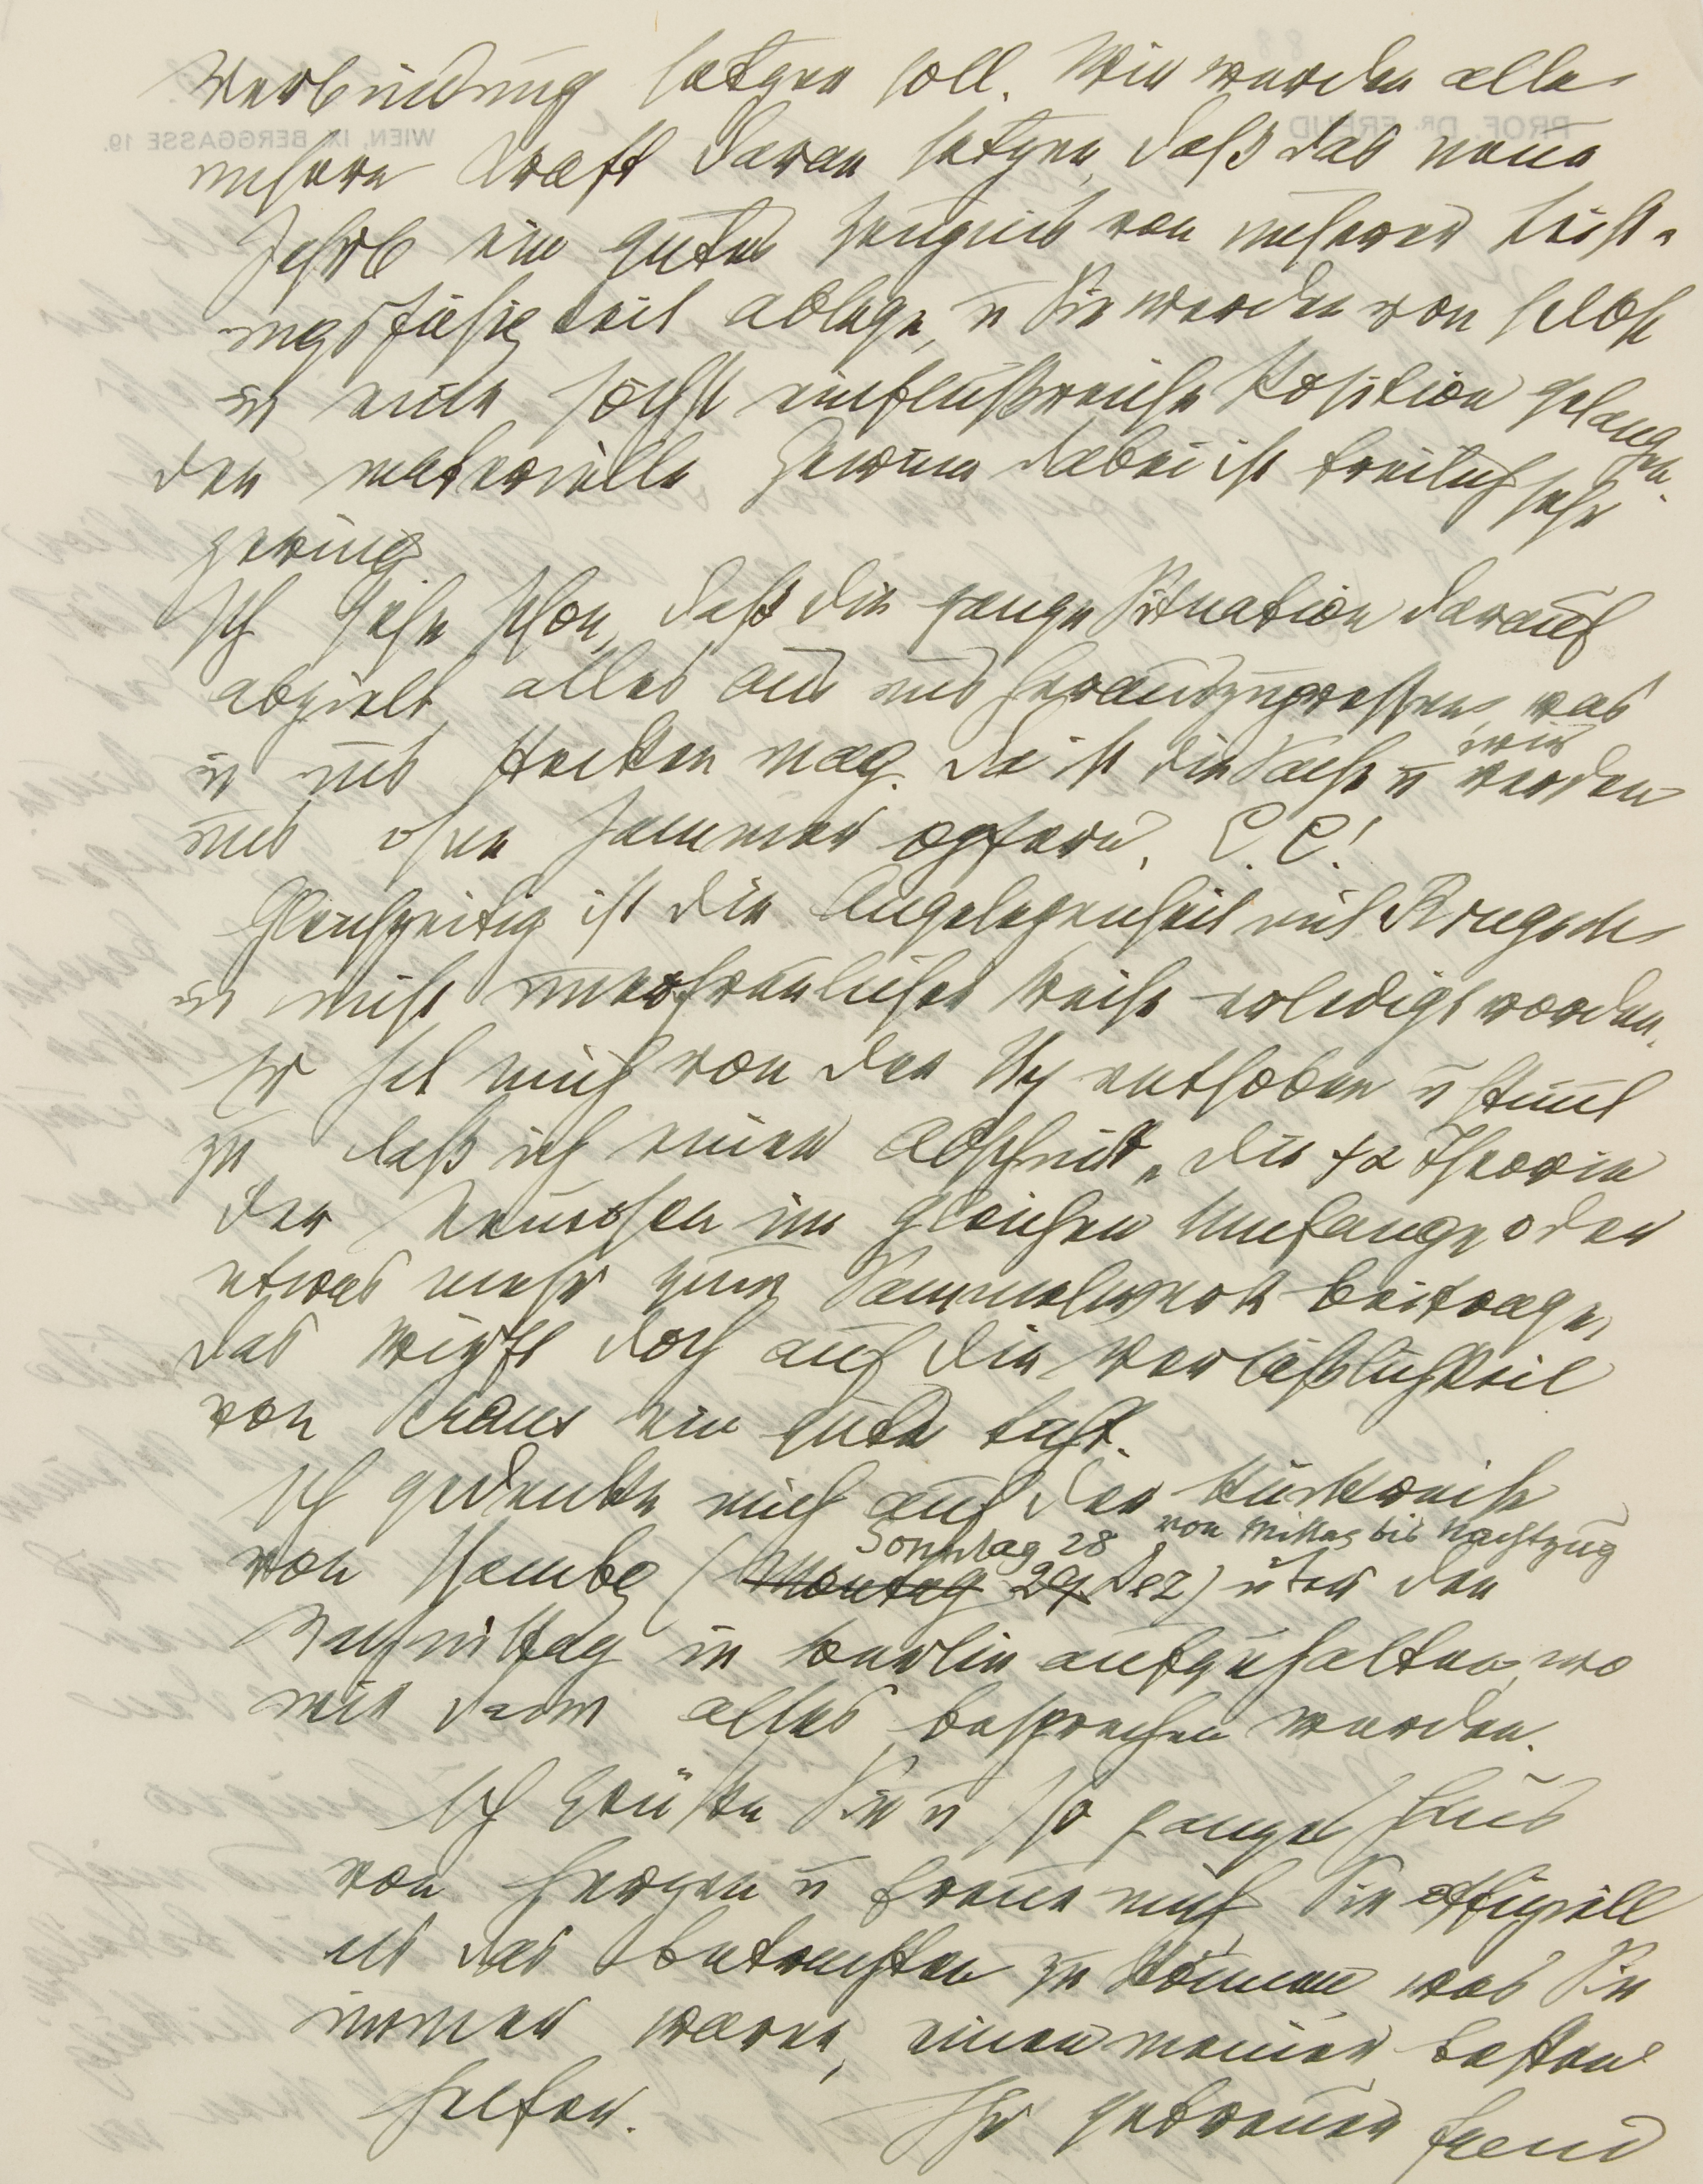 Verbindung setzen soll. Wir werden alle
unsere Kraft daran setzen, daß das neue
Jahrb ein gutes Zeugnis von unserer Leist-
ungsfähigkeit ablege, u Sie werden von selbst
in eine höchst einflußreiche Position gelangen.
der materielle Gewinn dabei ist freilich sehr
gering.
Ich sehe schon, daß die ganze Situation darauf
abzielt, alles aus uns herauszupressen, was
in uns stecken mag. Da ist die Sache u wir werden
uns ohne Jammer opfern. C.C!
Gleichzeitig ist die Angelegenheit mit Kraus
in nicht unerfreulicher Weise erledigt worden.
Er hat mich von der Hy enthoben u stimmt
zu, daß ich einen Abschnitt „die ψα Theorie
der Neurosen im gleichen Umfange oder
etwas mehr zum Sammelwerk beitrage,
das wirft doch auf die Verläßlichkeit
von Kraus ein gutes Licht.
Ich gedenke mich auf der Rückreise
von Hambg (Montag 29 Sonntag 28 Dez) von Mittag bis Nachtzug über den
Nachmittag in Berlin aufzuhalten, wo
wir dann alles besprechen werden.
Ich grüße Sie u Ihr ganzes Haus
von Herzen u freue mich, Sie offiziell
als das betrachten zu können, was Sie
immer waren, einen meiner besten
Helfer. Ihr getreuer Freud
PROF. DR. FREUD
WIEN, IX. BERGGASSE 19.